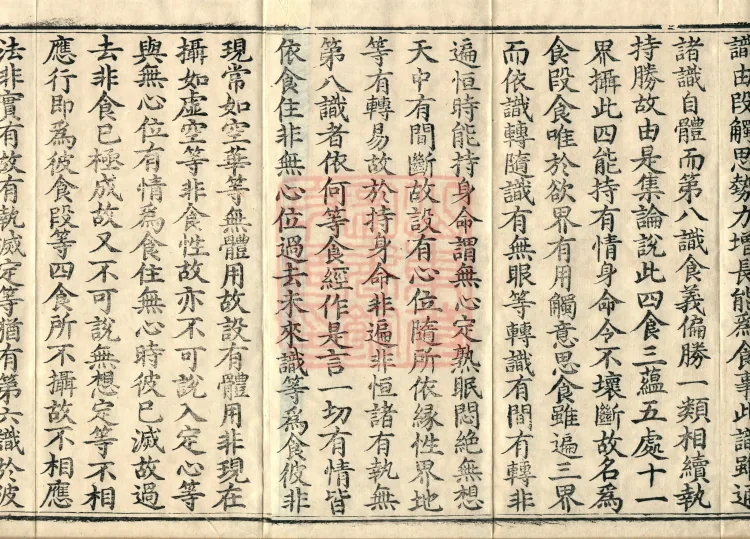 識由段觸思勢力增長能為食事此識雖通
諸識自體而第八識食義偏勝一類相續執
持勝故由是集論說此四食三蘊五處十一
界攝此四能持有情身命令不壞斷故名為
食段食唯於欲界有用觸意思食雖遍三界
而依識轉隨識有無眼等轉識有間有轉非
遍恒時能持身命謂無心定熟眠悶絕無想
天中有間斷故設有心位隨所依緣性界地
等有轉易故於持身命非遍非恒諸有執無
第八識者依何等食經作是言一切有情皆
依食住非無心位過去未來識等為食彼非
現常如空華等無體用故設有體用非現在
攝如虛空等非食性故亦不可說入定心等
與無心位有情為食住無心時彼已滅故過
去非食已極成故又不可說無想定等不相
應行即為彼食段等四食所不攝故不相應
法非實有故有執滅定等猶有第六識於彼